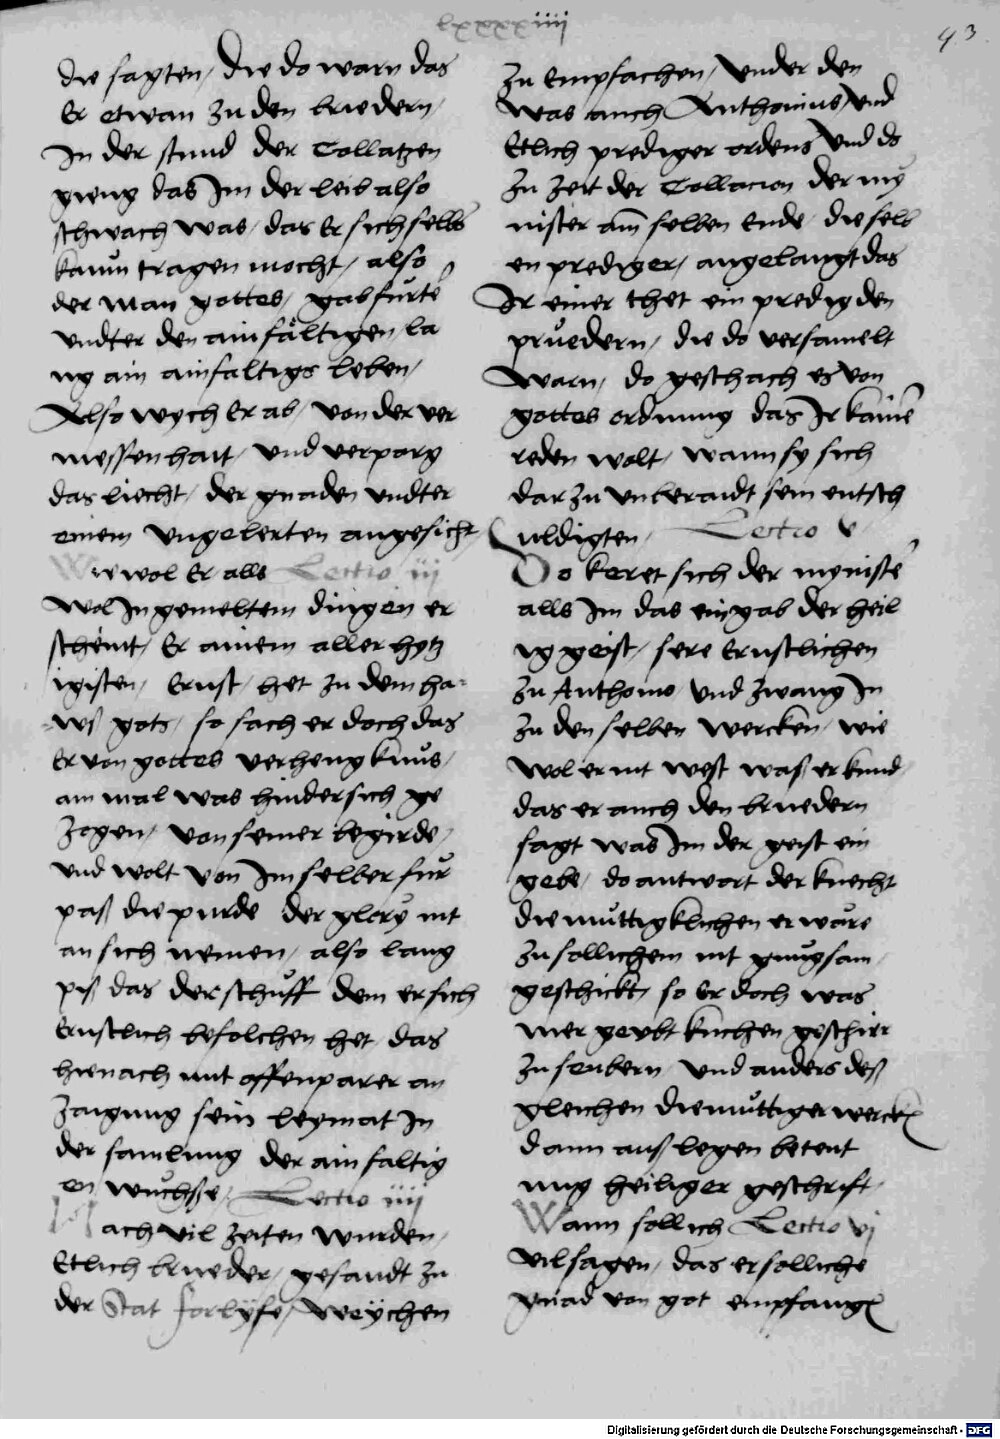 lxxxxiiij
93.
die sagten / die do warn das
Er etwan zu den briedern /
In der stund der Collatzen
gieng das Im der leib also
schwach was / das Er sich selbs
kaum tragen mocht / also
der man gottes / gab furte
vndter den ainfältigen / la
ng ain ainfaltigs leben /
Also wych Er ab / von der ver
messenhait / vnd verparg
das liecht / der gnaden vndter
einem vngelerten angesicht
Wiewol Er alls Lectio iij
wol In gemeltem dingen er
scheint / Er ainem aller hytz
igisten / Ernst / het zu dem ha-
ws gots / so sach er doch das
Er von gottes verhengknus /
ain mal was hindersich ge
zogen / von seiner begirde /
vnd wolt von Im selber fur
paß die purde der glory nit
an sich nemen / also lang
piß das der schuff dem er sich
Ernstlich befolchen het / das
hienach mit offenparer an
zaigung sein leymat In
der samlung der ainfaltig
en wuchße / Lectio iiij
Nach vil zeiten wurden /
Etlich brueder / gesandt zu
der Stat Forlyfe / weychen
zu Empfachen / vnder den
was auch Anthonius / vnd
Etlich prediger ordens vnd do
zu zeit der Collacion der my
nister am selben Ende / die selb
en prediger / angelangt das
Ir einer thet ein predig den
pruedern / die do versamelt
warn / do geschach es von
gottes ordnung das Ir kaine
reden wolt / wann sy sich
dar zu vnberaidt sein entsch
uldigten / Lectio v
Do keret sich der myniste
alls Im das eingab der heil
ig geist / sere Ernstlichen
zu Anthonio vnd zwang In
zu den selben wercken / wie
wol er nit west was er kund /
das er auch den bruedern
sagt was Im der geist ein
gebe / do antwort der knecht
diemuttigklichen er wäre
zu sollichem nit gnugsam /
geschickt / so Er doch was
mer geybt kuchen geschirr
zu seubern vnd anders deß
gleichen diemuttiger wercken
dann auß legen betent
nug heiliger geschrift /
Wann sollich Lectio vj
vil sagen / das er solliche
gnad von got empfangen
Digitalisierung gefördert durch die Deutsche Forschungsgemeinschaft - DFG